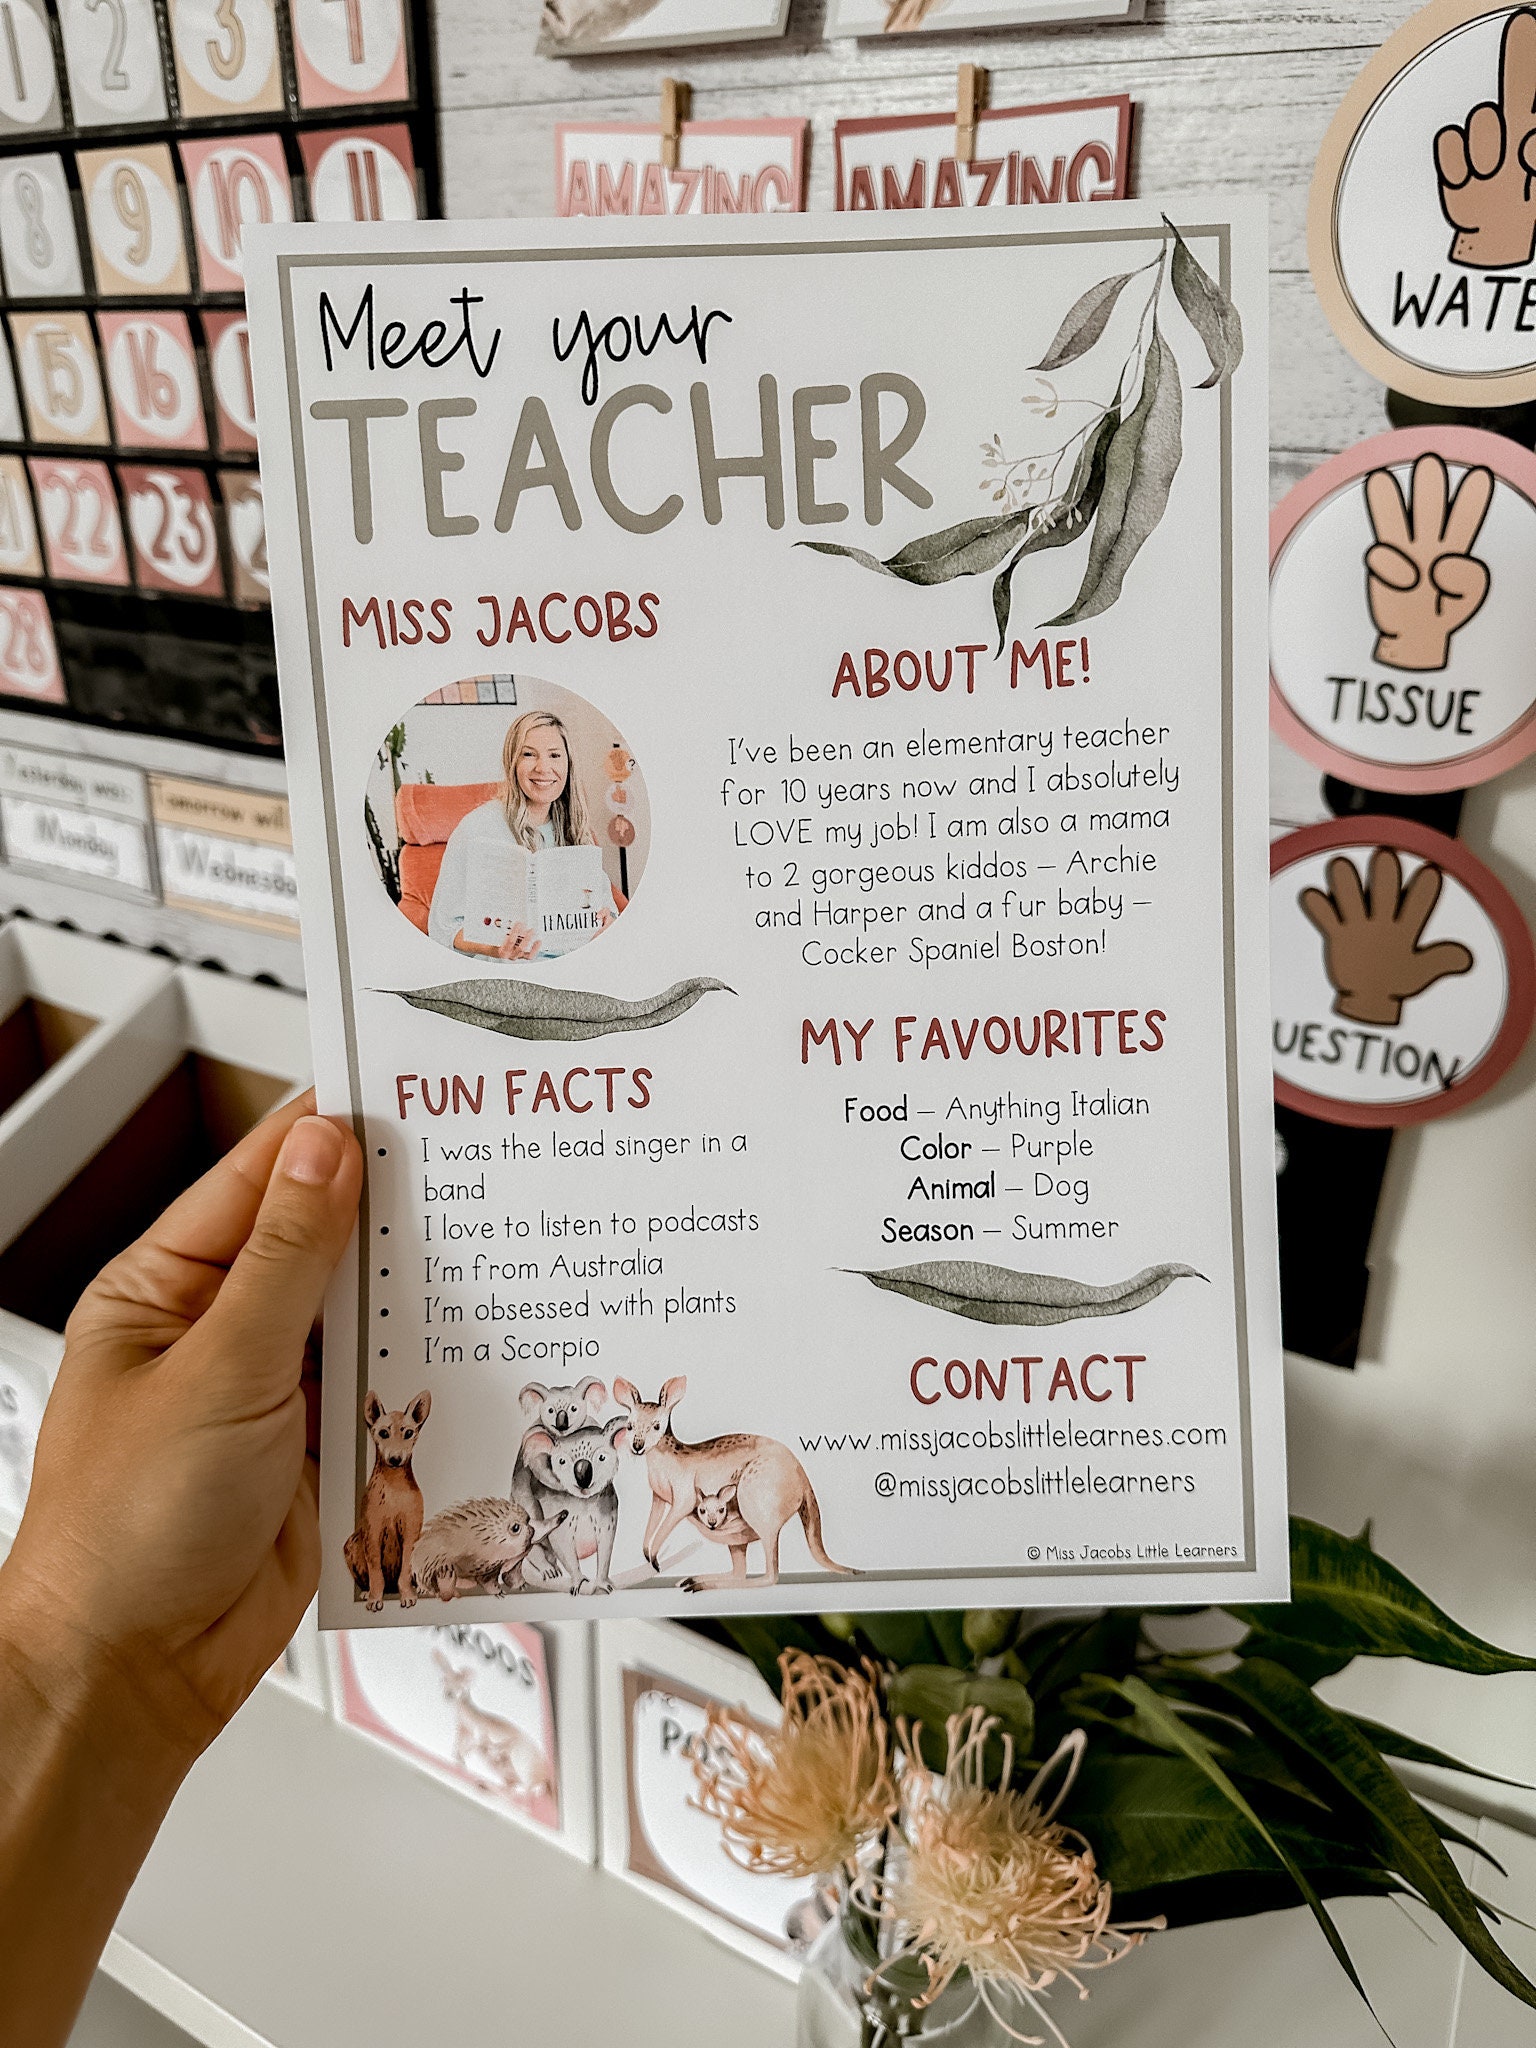 1
2
3
8
9
10
11
15
16
22
23
28
AMAZING
AMAZING
TISSUE
Yesterday was:
Monday
Tomorrow will
Meet your
TEACHER
MISS JACOBS
TEACHER
FUN FACTS
• I was the lead singer in a
band
• I love to listen to podcasts
• I'm from Australia
• I'm obsessed with plants
• I'm a Scorpio
ABOUT ME!
I've been an elementary teacher
for 10 years now and I absolutely
LOVE my job! I am also a mama
to 2 gorgeous kiddos – Archie
and Harper and a fur baby –
Cocker Spaniel Boston!
MY FAVOURITES
Food – Anything Italian
Color – Purple
Animal – Dog
Season – Summer
CONTACT
www.missjacobslittlelearnes.com
@missjacobslittlelearners
© Miss Jacobs Little Learners